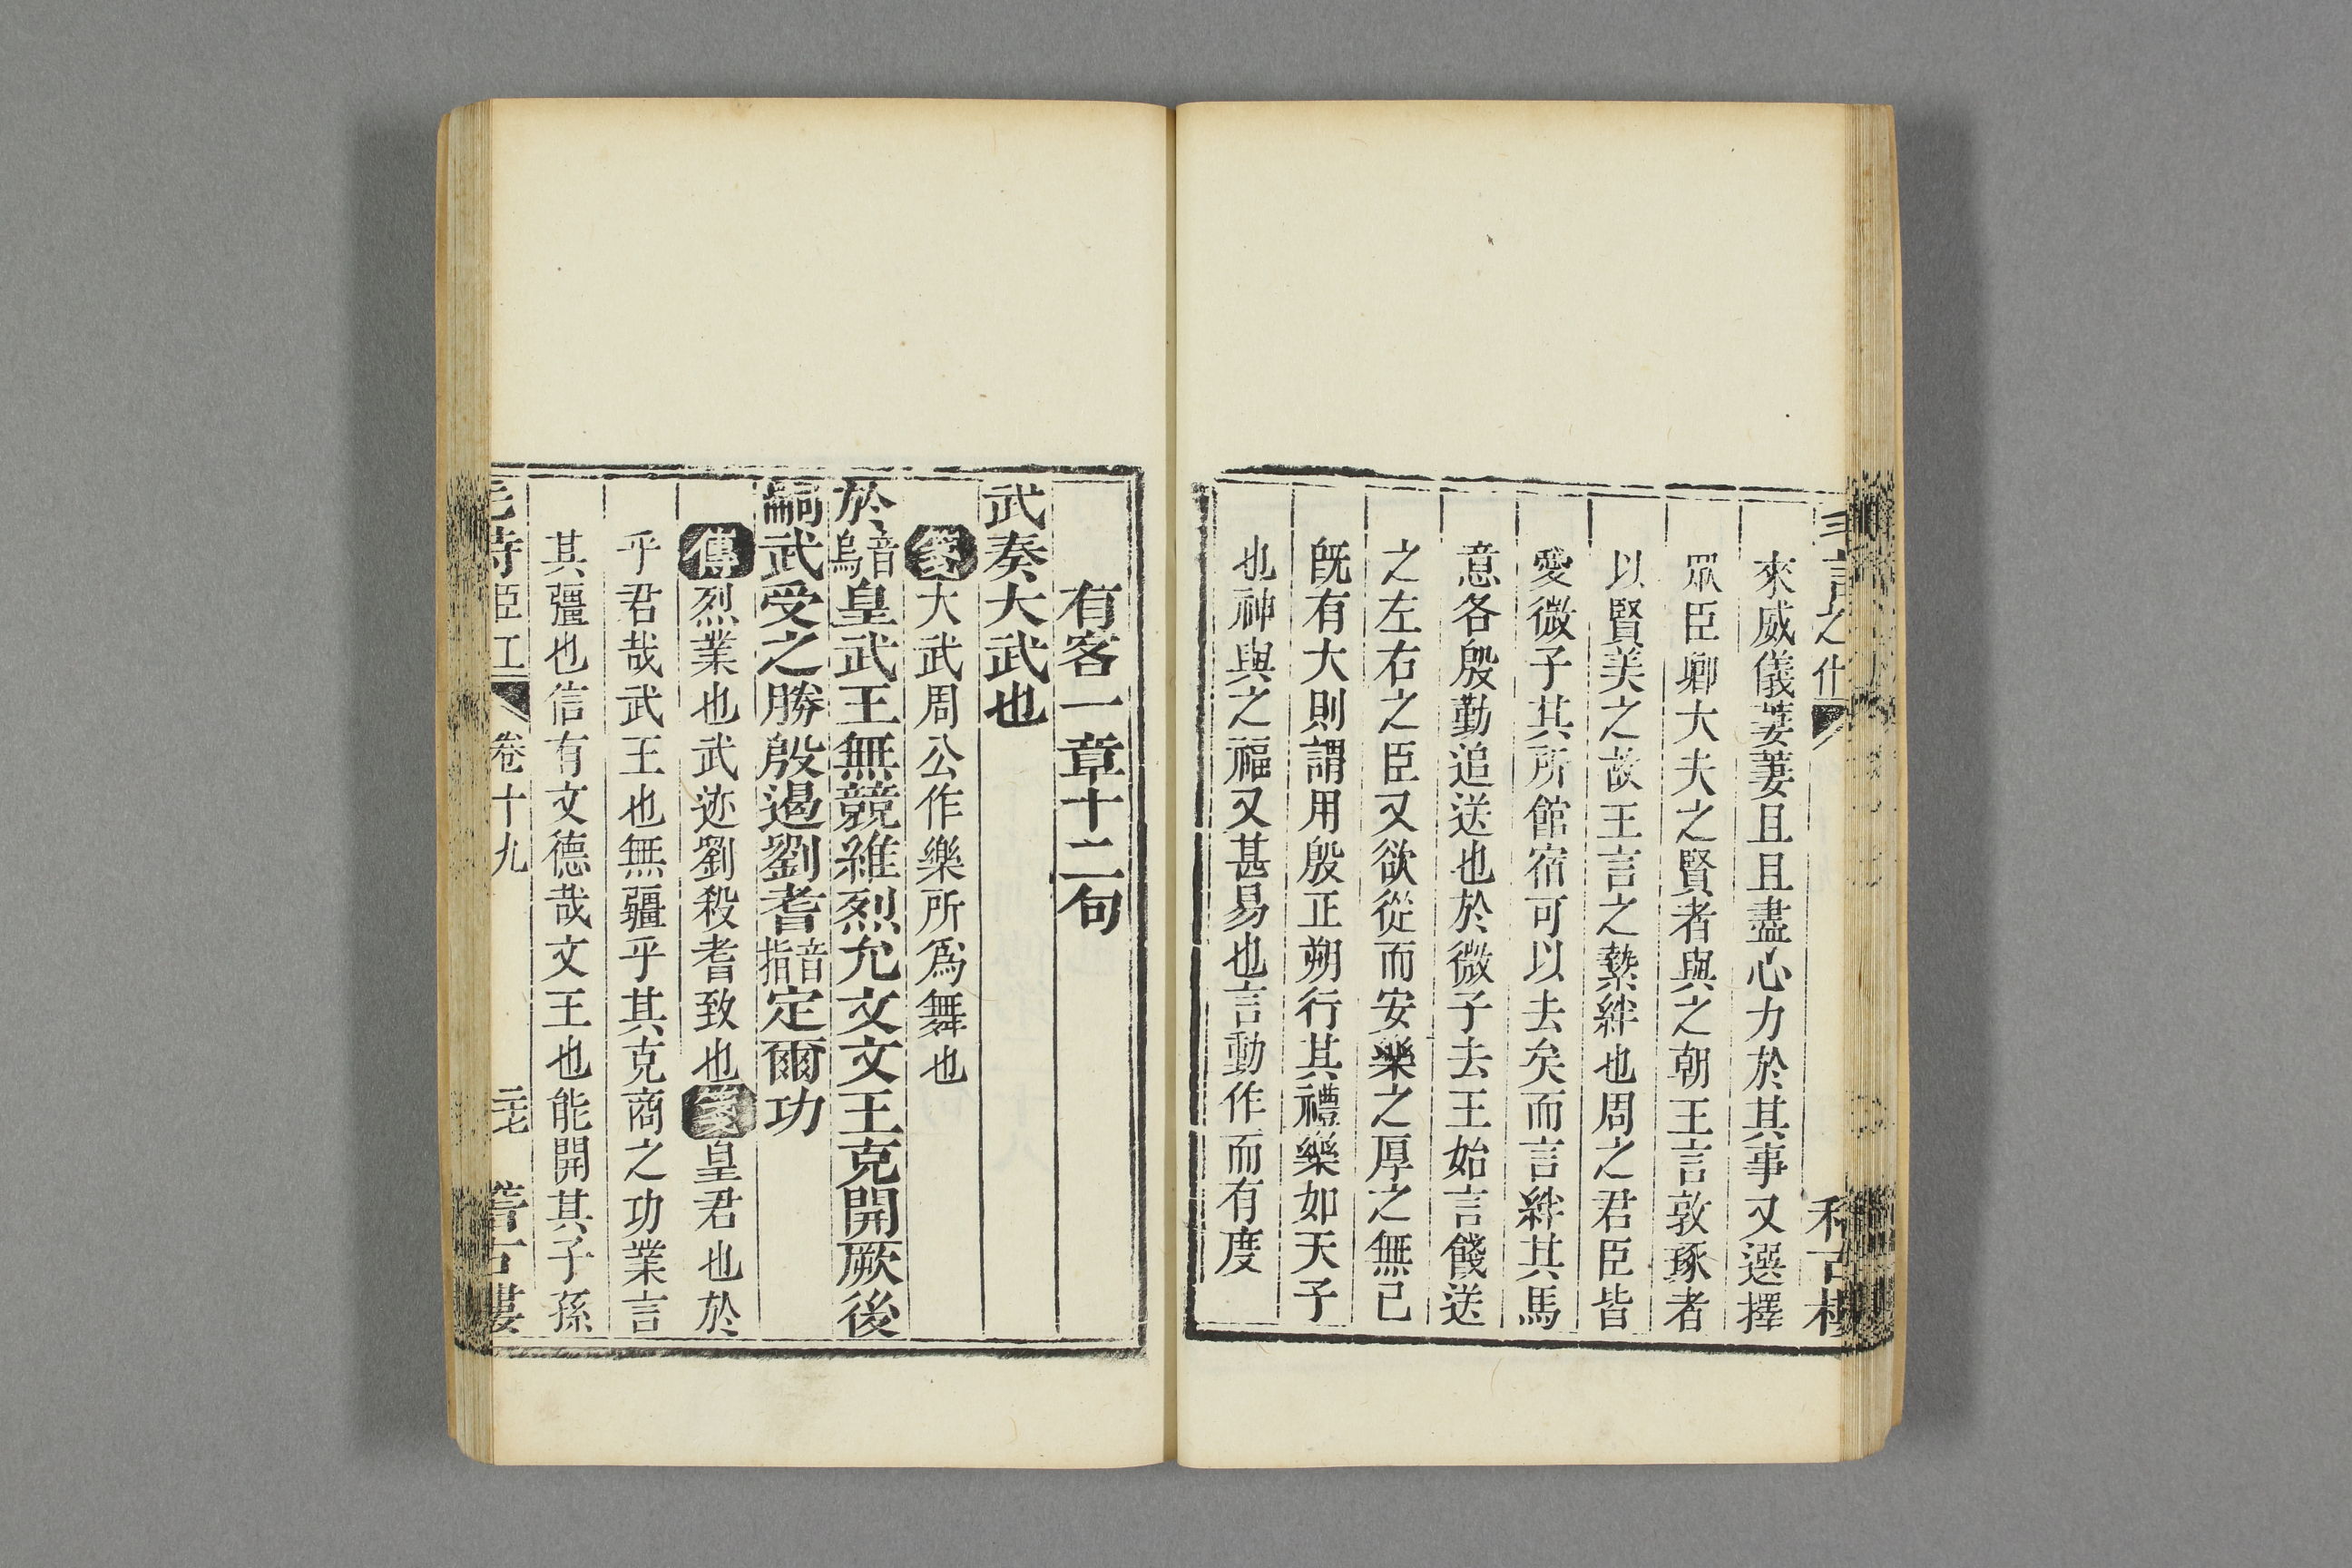 來威儀萋萋且且盡心力於其事又選擇
眾臣卿大夫之賢者與之朝王言敦琢者
以賢美之故王言之縶絆也周之君臣皆
愛微子其所館宿可以去矣而言絆其馬
意各殷勤追送也於微子去王始言餞送
之左右之臣又欲從而安樂之厚之無已
旣有大則謂用殷正朔行其禮樂如天子
也神與之福又甚易也言動作而有度
有客一章十二句
武奏大武也
箋大武周公作樂所爲舞也
於音烏皇武王無競維烈允文文王克開厥後
嗣武受之勝殷遏劉耆音指定爾功
傳烈業也武迹劉殺耆致也箋皇君也於
乎君哉武王也無疆乎其克商之功業言
其疆也信有文德哉文王也能開其子孫
毛詩臣工 卷十九 二七